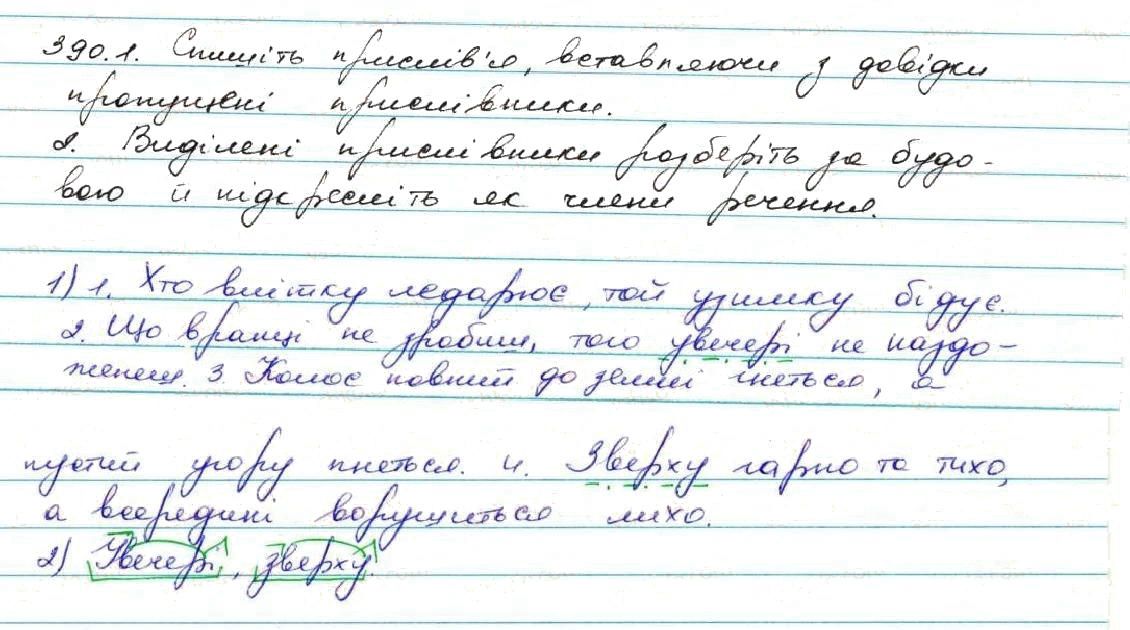 390.1. Спишіть прислів'я, вставляючи з довідки
пропущені прислівники.
2. Виділені прислівники розберіть за будо-
вою й підкресліть як члени речення.
1) 1. Хто влітку ледарює, той узимку бідує.
2. Що вранці не зробиш, того увечері не наздо-
женеш. 3. Колос повний до землі гнеться, а
пустий угору пнеться. 4. Зверху гарно та тихо,
а всередині ворушиться лихо.
2) Увечері, зверху.